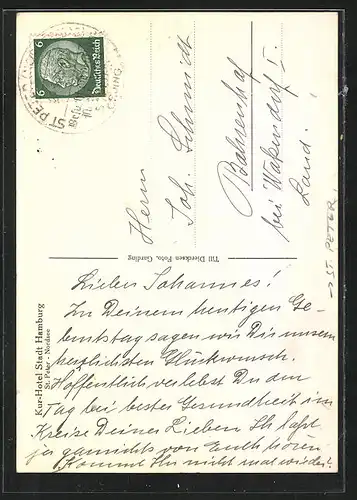 ST. PETER
6
6
Deutsches Reich
Herrn
Joh. Schmidt
Bahrenhof
bei Wakendorf I.
Land.
Till Diercksen Foto, Garding
→ ST. PETER
Kur-Hotel Stadt Hamburg
St. Peter - Nordsee
Lieber Johannes!
Zu Deinem heutigen Ge-
burtstag sagen wir Dir unsern
herzlichsten Glückwunsch.
Hoffentlich verlebst Du den
Tag bei bester Gesundheit im
Kreise Deiner Lieben. Ihr laßt
ja garnichts von Euch hören.
Kommt Ihr nicht mal wieder?